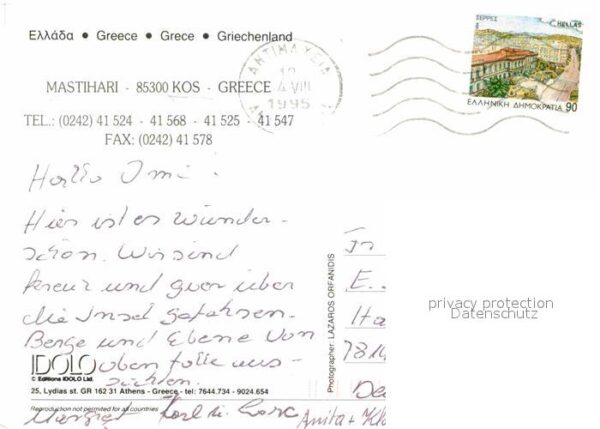 Ελλάδα • Greece • Grece • Griechenland
ΣΕΡΡΕΣ HELLAS
ΑΝΤΙΜΑΧΕΙΑ
4 VIII
1995
ΕΛΛΗΝΙΚΗ ΔΗΜΟΚΡΑΤΙΑ 90
MASTIHARI - 85300 KOS - GREECE
TEL.: (0242) 41 524 - 41 568 - 41 525 - 41 547
FAX: (0242) 41 578
Hallo Omi
Hier ist es wunder-
schön. Wir sind
kreuz und quer über
die Insel gefahren.
Berge und Ebene von
oben tolle aus-
sichten.
IDOLO
© Editions IDOLO Ltd.
25, Lydias st. GR 162 31 Athens - Greece - tel: 7644.734 - 9024.654
Reproduction not permitted for all countries
Margret
Anita +
Photographer LAZAROS ORFANIDIS
E..
Ha
De
privacy protection
Datenschutz